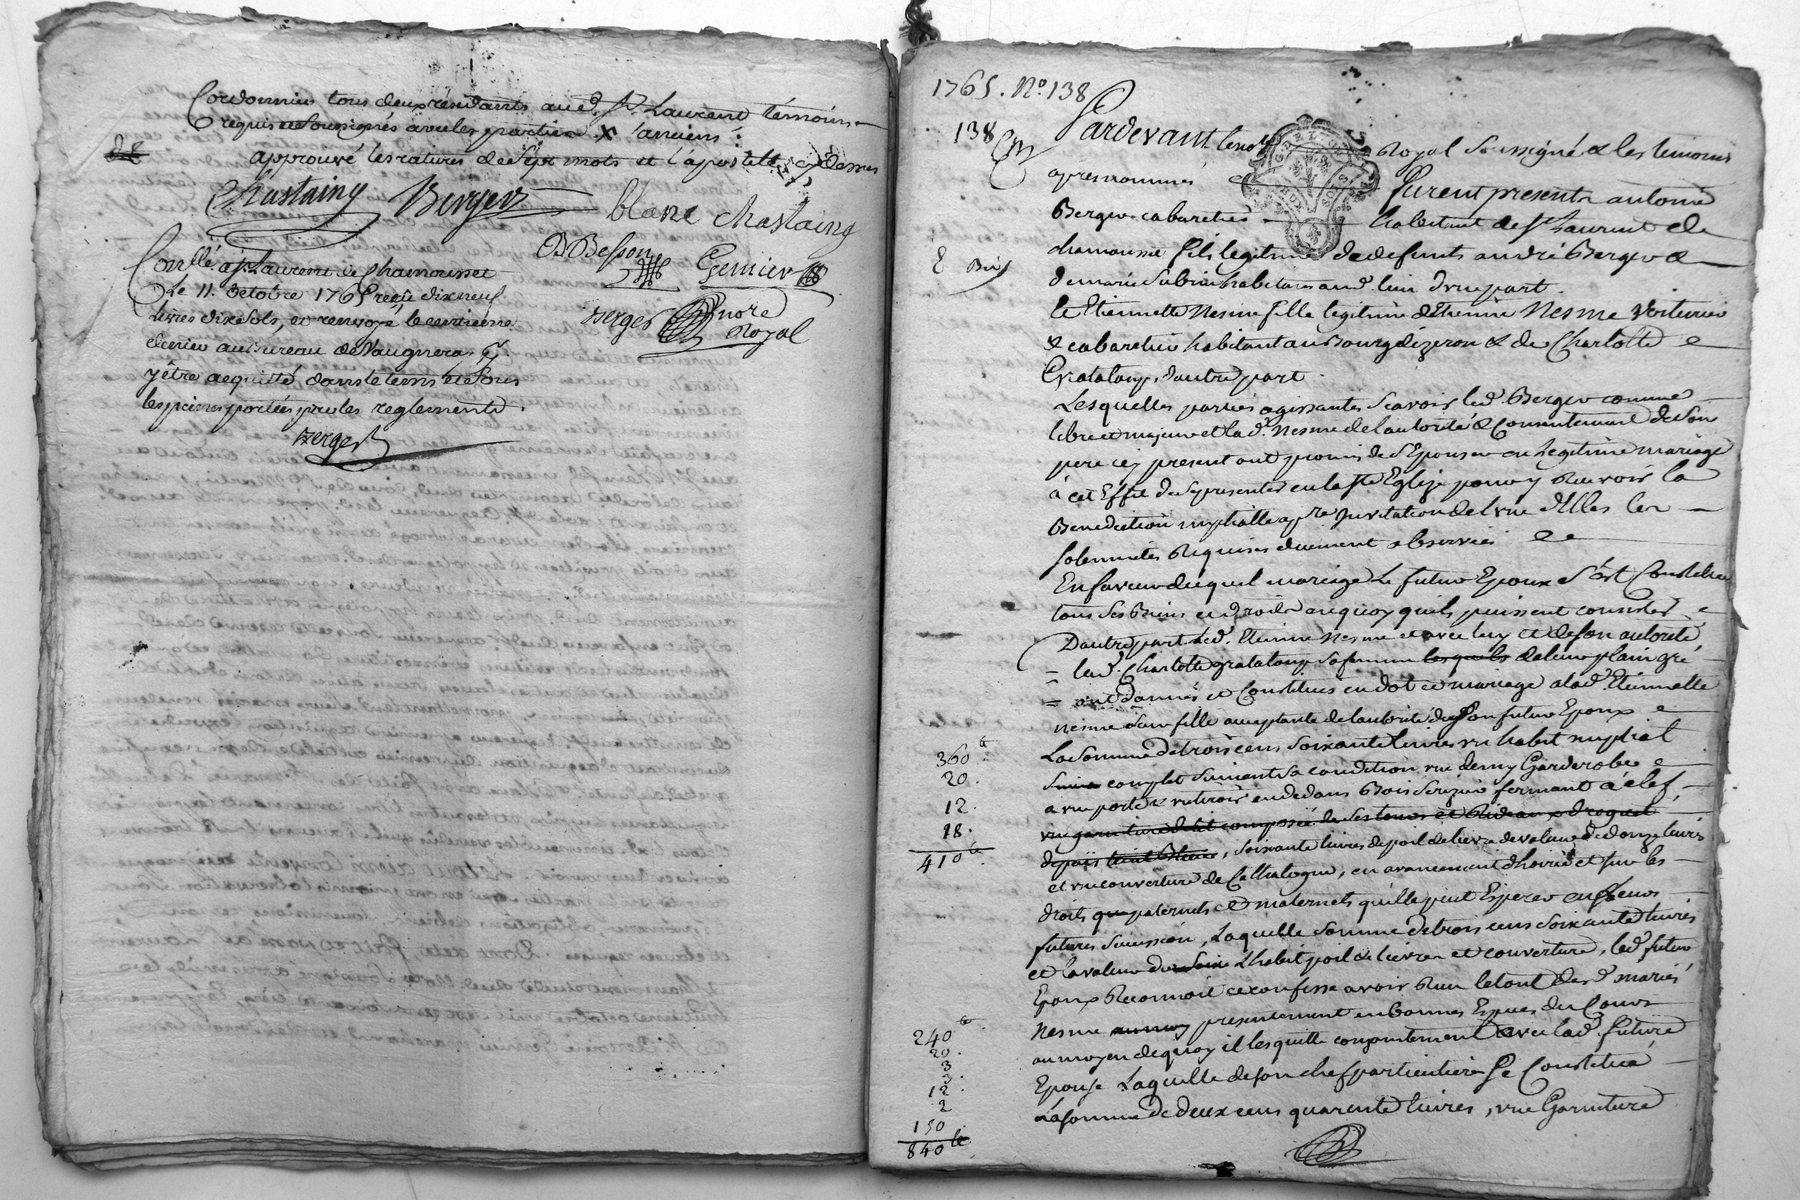 Cordonnier tous deux résidants aud. St. Laurent témoins
requis et soussignés avec les parties x l'anciene
approuvé les ratures de sept mots et l'apostille cy dessus
Chastaing Berger blanc chastaing
B Besson Grenier
Conllé a St Laurent de Chamousset
Le 11. octobre 1765 reçu dix neuf
Livres dix sols, et renvoyé le centieme
denier au Bureau de Vaugneray p.
y être acquitté dans le tems et sous
les peines portées par les reglements.
Berger
Berger nore
Royal
1765. No. 138
138
Pardevant le no
Royal soussigné & les temoins
apres nommés
furent presents antoine
Berger cabaretier habitant de St Laurent de
chamousset fils legitime de defunts andré Berger &
de marie Subrin habitans aud. lieu d'une part.
& Etiennette Nesme fille legitime d'Etienne Nesme voiturier
& cabaretier habitant au Bourg d'izeron & de Charlotte
Grataloup, d'autre part.
Lesquelles parties agissantes scavoir led. Berger comme
libre et majeur et lad. Nesme de l'autorité & Consentement de son
pere icy present ont promis de s'Epouser en legitime mariage
à cet Effet de se presenter en la Ste Eglise pour y recevoir la
Benediction nuptialle a pre invitation de l'une d'Elles les
solemnités requises duement observées
En faveur duquel mariage Le futur Epoux s'est Constitué
tous ses Biens et droits en quoy qu'ils puissent consister
D'autre part Led. Etienne Nesme et avec luy et de son autorité
lad. Charlotte grataloup sa femme lesquels de leur plain gré
ont donnés et Constitués en dot et mariage a lad. Etiennette
Nesme leur fille acceptante de l'autorité de son futur Epoux
360 ᵗᵗ
La somme de trois cens soixante livres un habit nuptial
20.
complet suivant sa condition, une demy Garderobe
12.
a une porte & un tiroir en dedans Bois Serizier fermant à clef,
18.
une garniture de lit composée de ses tours et Rideaux droguet
410 ᵗᵗ
de pays teint Bleue, soixante livres de poil de lievre de valeur de douze livres
et une couverture de Cathalogne, en avancement d'hoirie et sur les
droits paternels et maternels qu'elle peut Esperer en leurs
futures succession, Laquelle somme de trois cens soixante livres
et la valeur de l'habit poil de lievre et couverture, led. futur
Epoux Reconnoit et confesse avoir Reçu le tout desd. mariés
Nesme presentement en bonnes Especes du Cours
240 ᵗᵗ
au moyen de quoy il les quitte conjointement avec lad. future
20.
3
3.
Epouse Laquelle de son chef particulier se Constitue
12
2
La somme de deux cens quarante livres, une Garniture
150
840 ᵗᵗ